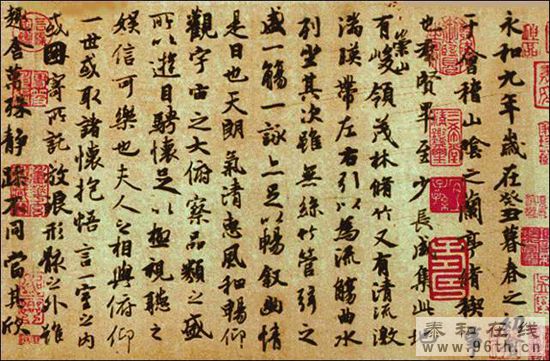 永和九年歲在癸丑暮春之初
于會稽山陰之蘭亭脩稧
也羣賢畢至少長咸集此地
有崇山峻領茂林脩竹又有清流激
湍暎帶左右引以為流觴曲水
列坐其次雖無絲竹管弦之
盛一觴一詠亦足以暢敘幽情
是日也天朗氣清惠風和暢仰
觀宇宙之大俯察品類之盛
所以遊目騁懷足以極視聽之
娛信可樂也夫人之相與俯仰
一世或取諸懷抱悟言一室之內
或因寄所託放浪形骸之外雖
趣舍萬殊靜躁不同當其欣
泰和在线
www.96th.cn